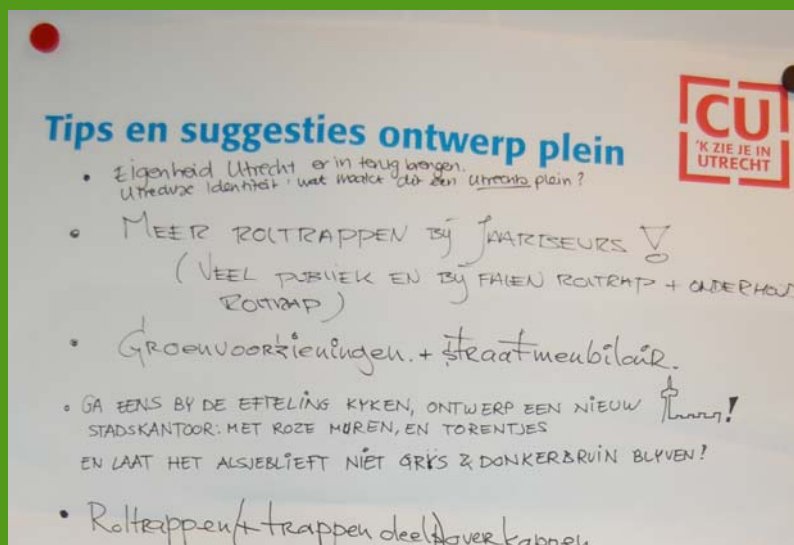 CU
'K ZIE JE IN
UTRECHT
Tips en suggesties ontwerp plein
• Eigenheid Utrecht er in terug brengen.
Utrechtse Identiteit: wat maakt dit een Utrechts plein?
• MEER ROLTRAPPEN BIJ JAARBEURS !
(VEEL PUBLIEK EN BIJ FALEN ROLTRAP + ONDERHOUD
ROLTRAP)
• Groenvoorzieningen. + straatmeubilair.
• GA EENS BY DE EFTELING KYKEN, ONTWERP EEN NIEUW !
STADSKANTOOR: MET ROZE MUREN, EN TORENTJES
EN LAAT HET ALSJEBLIEFT NIET GRYS & DONKERBRUIN BLYVEN!
• Roltrappen/+ trappen deels overkappen